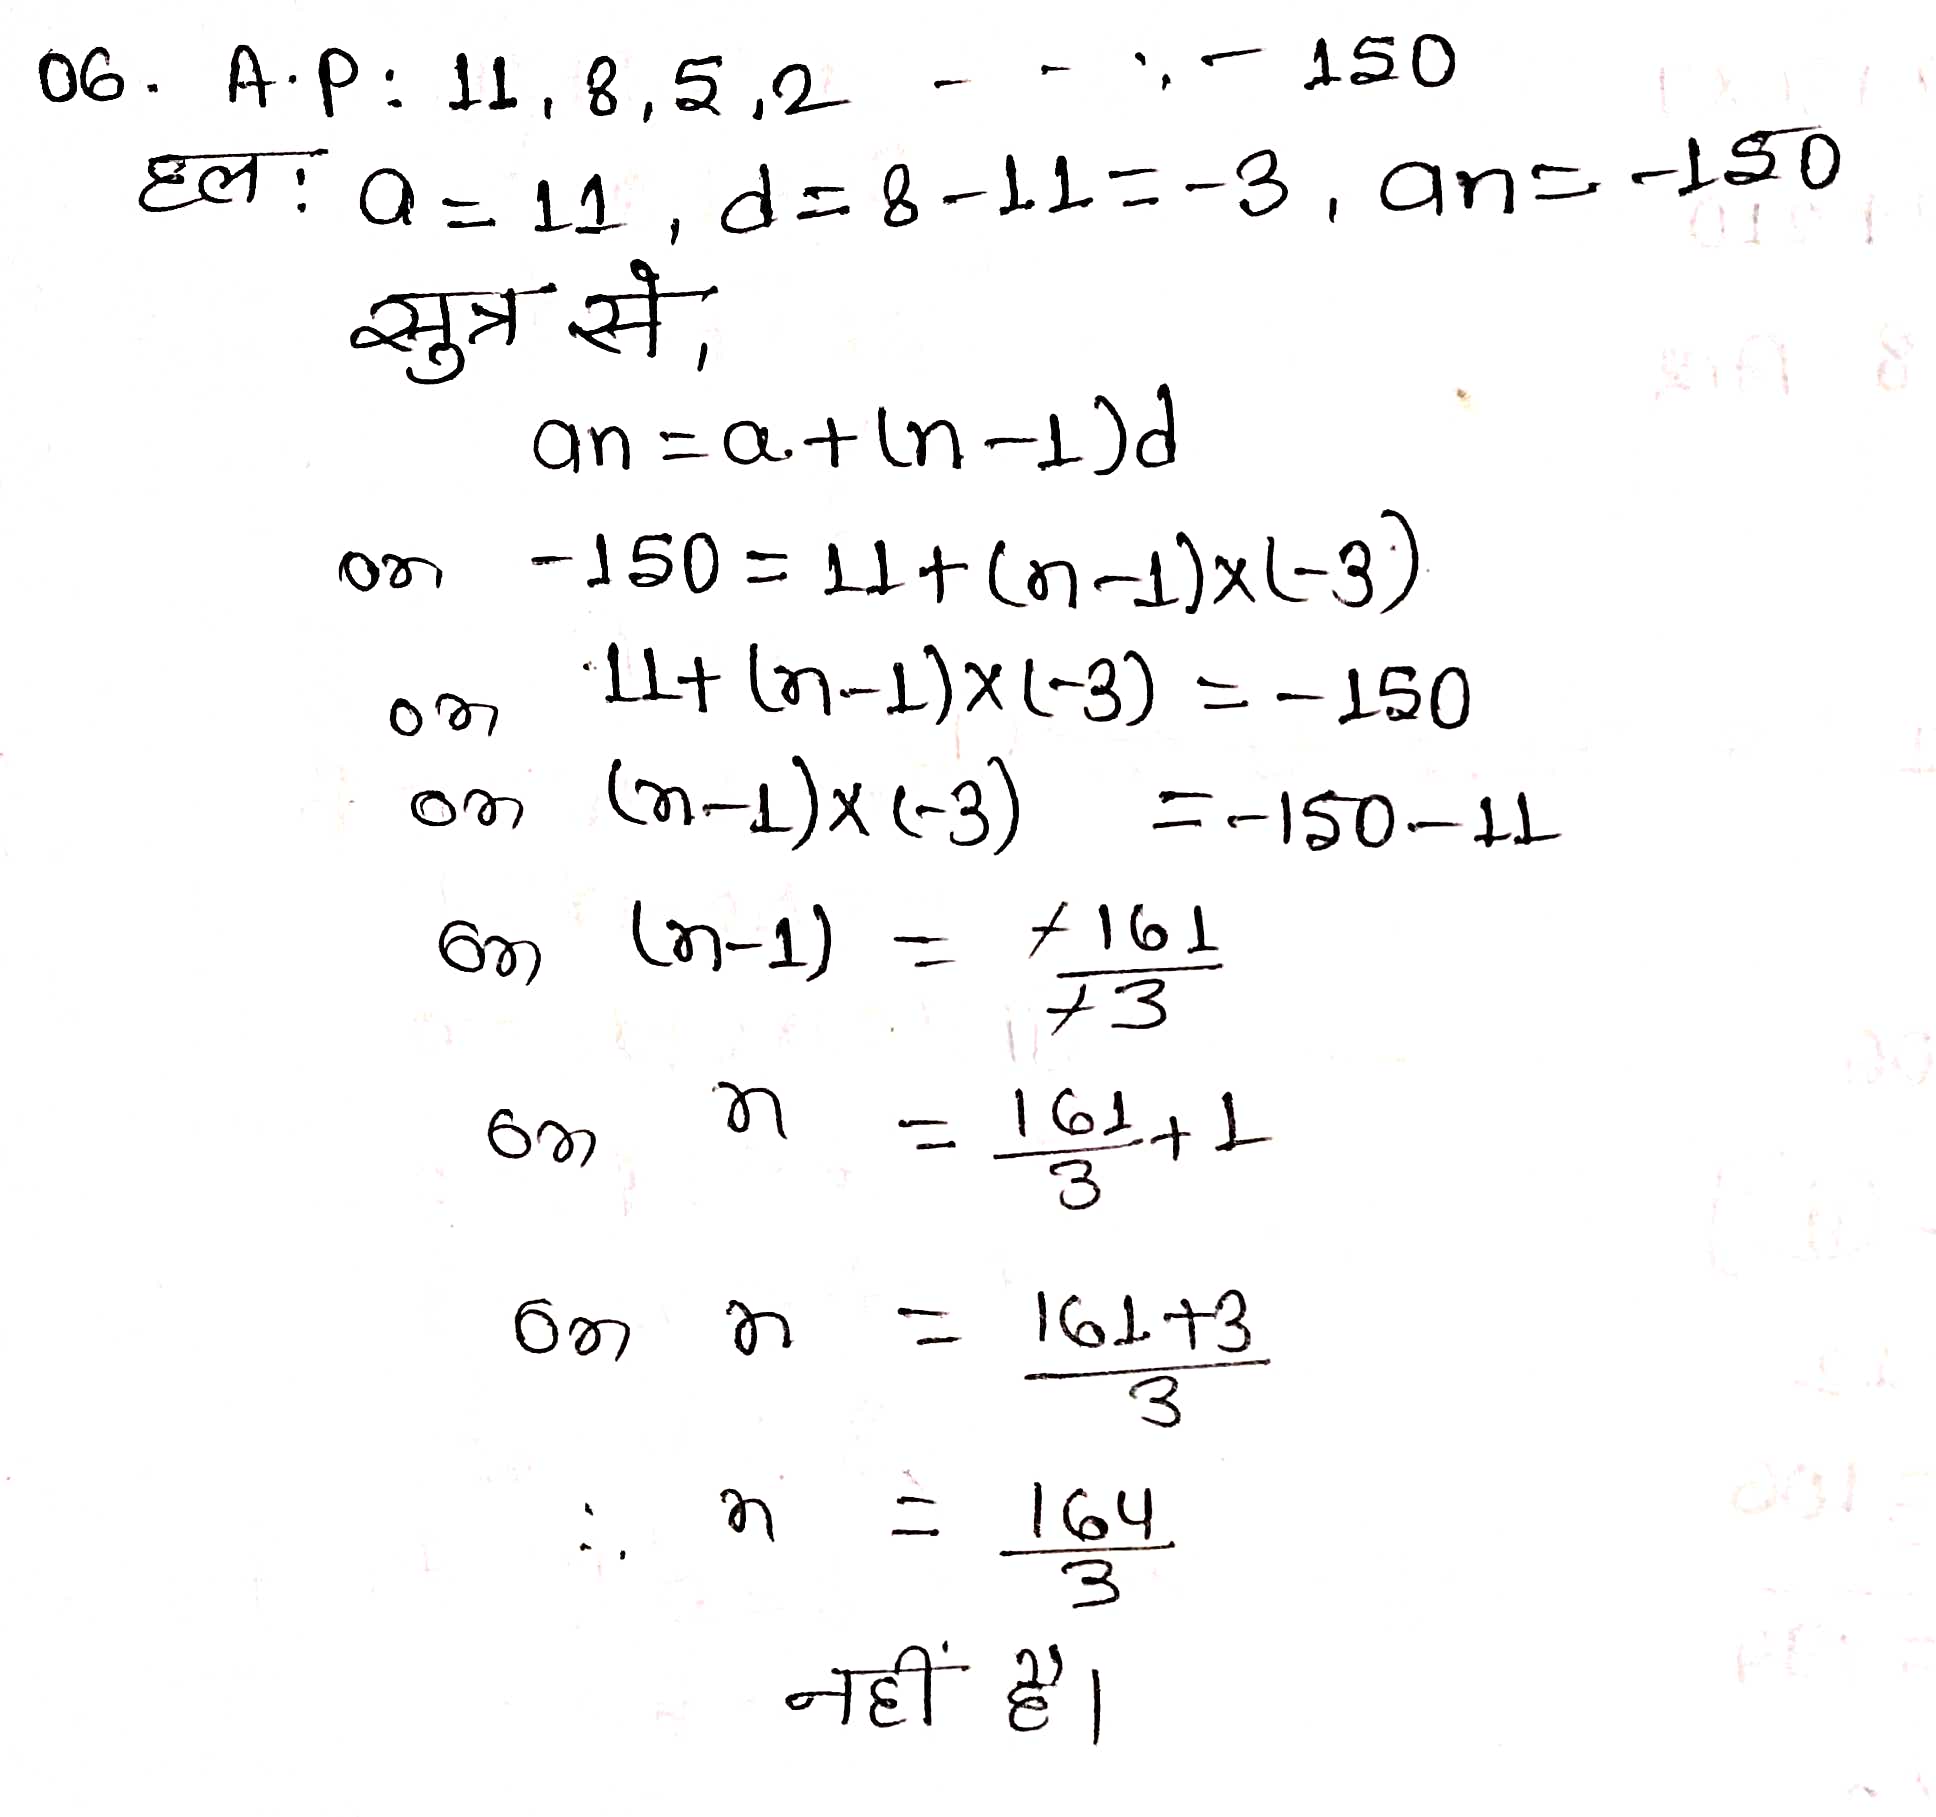 06. A.P: 11, 8, 5, 2 - - ., - 150
हल: a = 11, d = 8-11 = -3, an = -150
सुत्र से,
an = a + (n-1)d
or -150 = 11 + (n-1)×(-3)
or 11 + (n-1)×(-3) = -150
or (n-1)×(-3) = -150-11
or (n-1) = -161/-3
or n = 161/3 + 1
or n = 161+3/3
∴ n = 164/3
नहीं है।